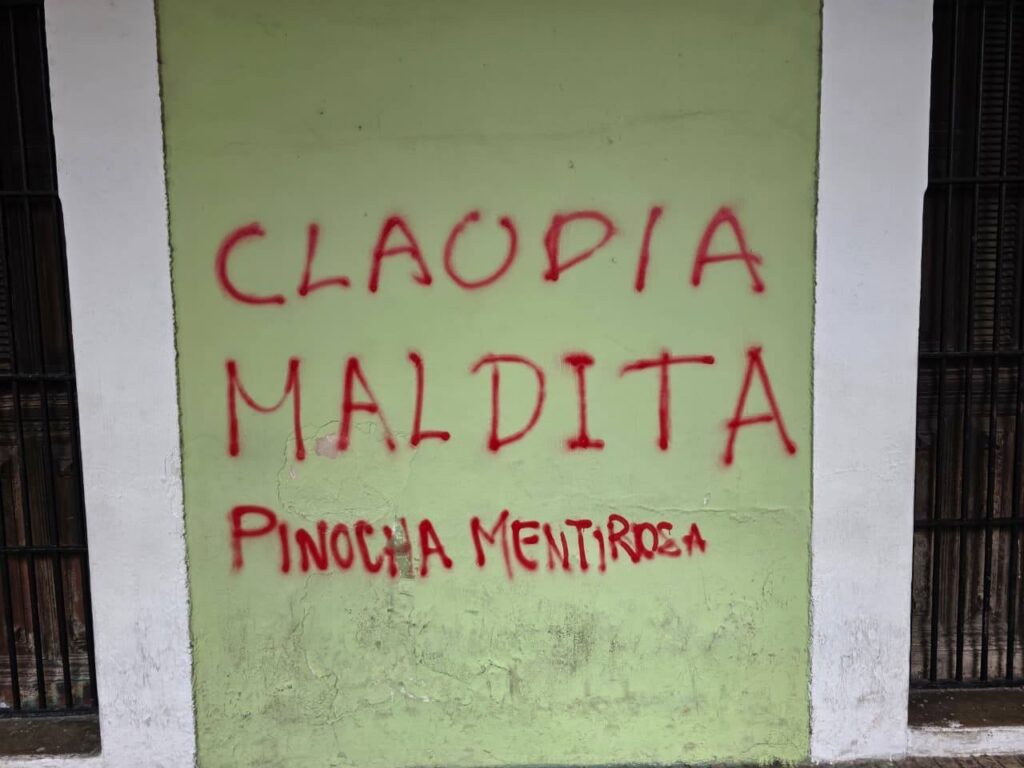 CLAUDIA
MALDITA
PINOCHA MENTIROSA